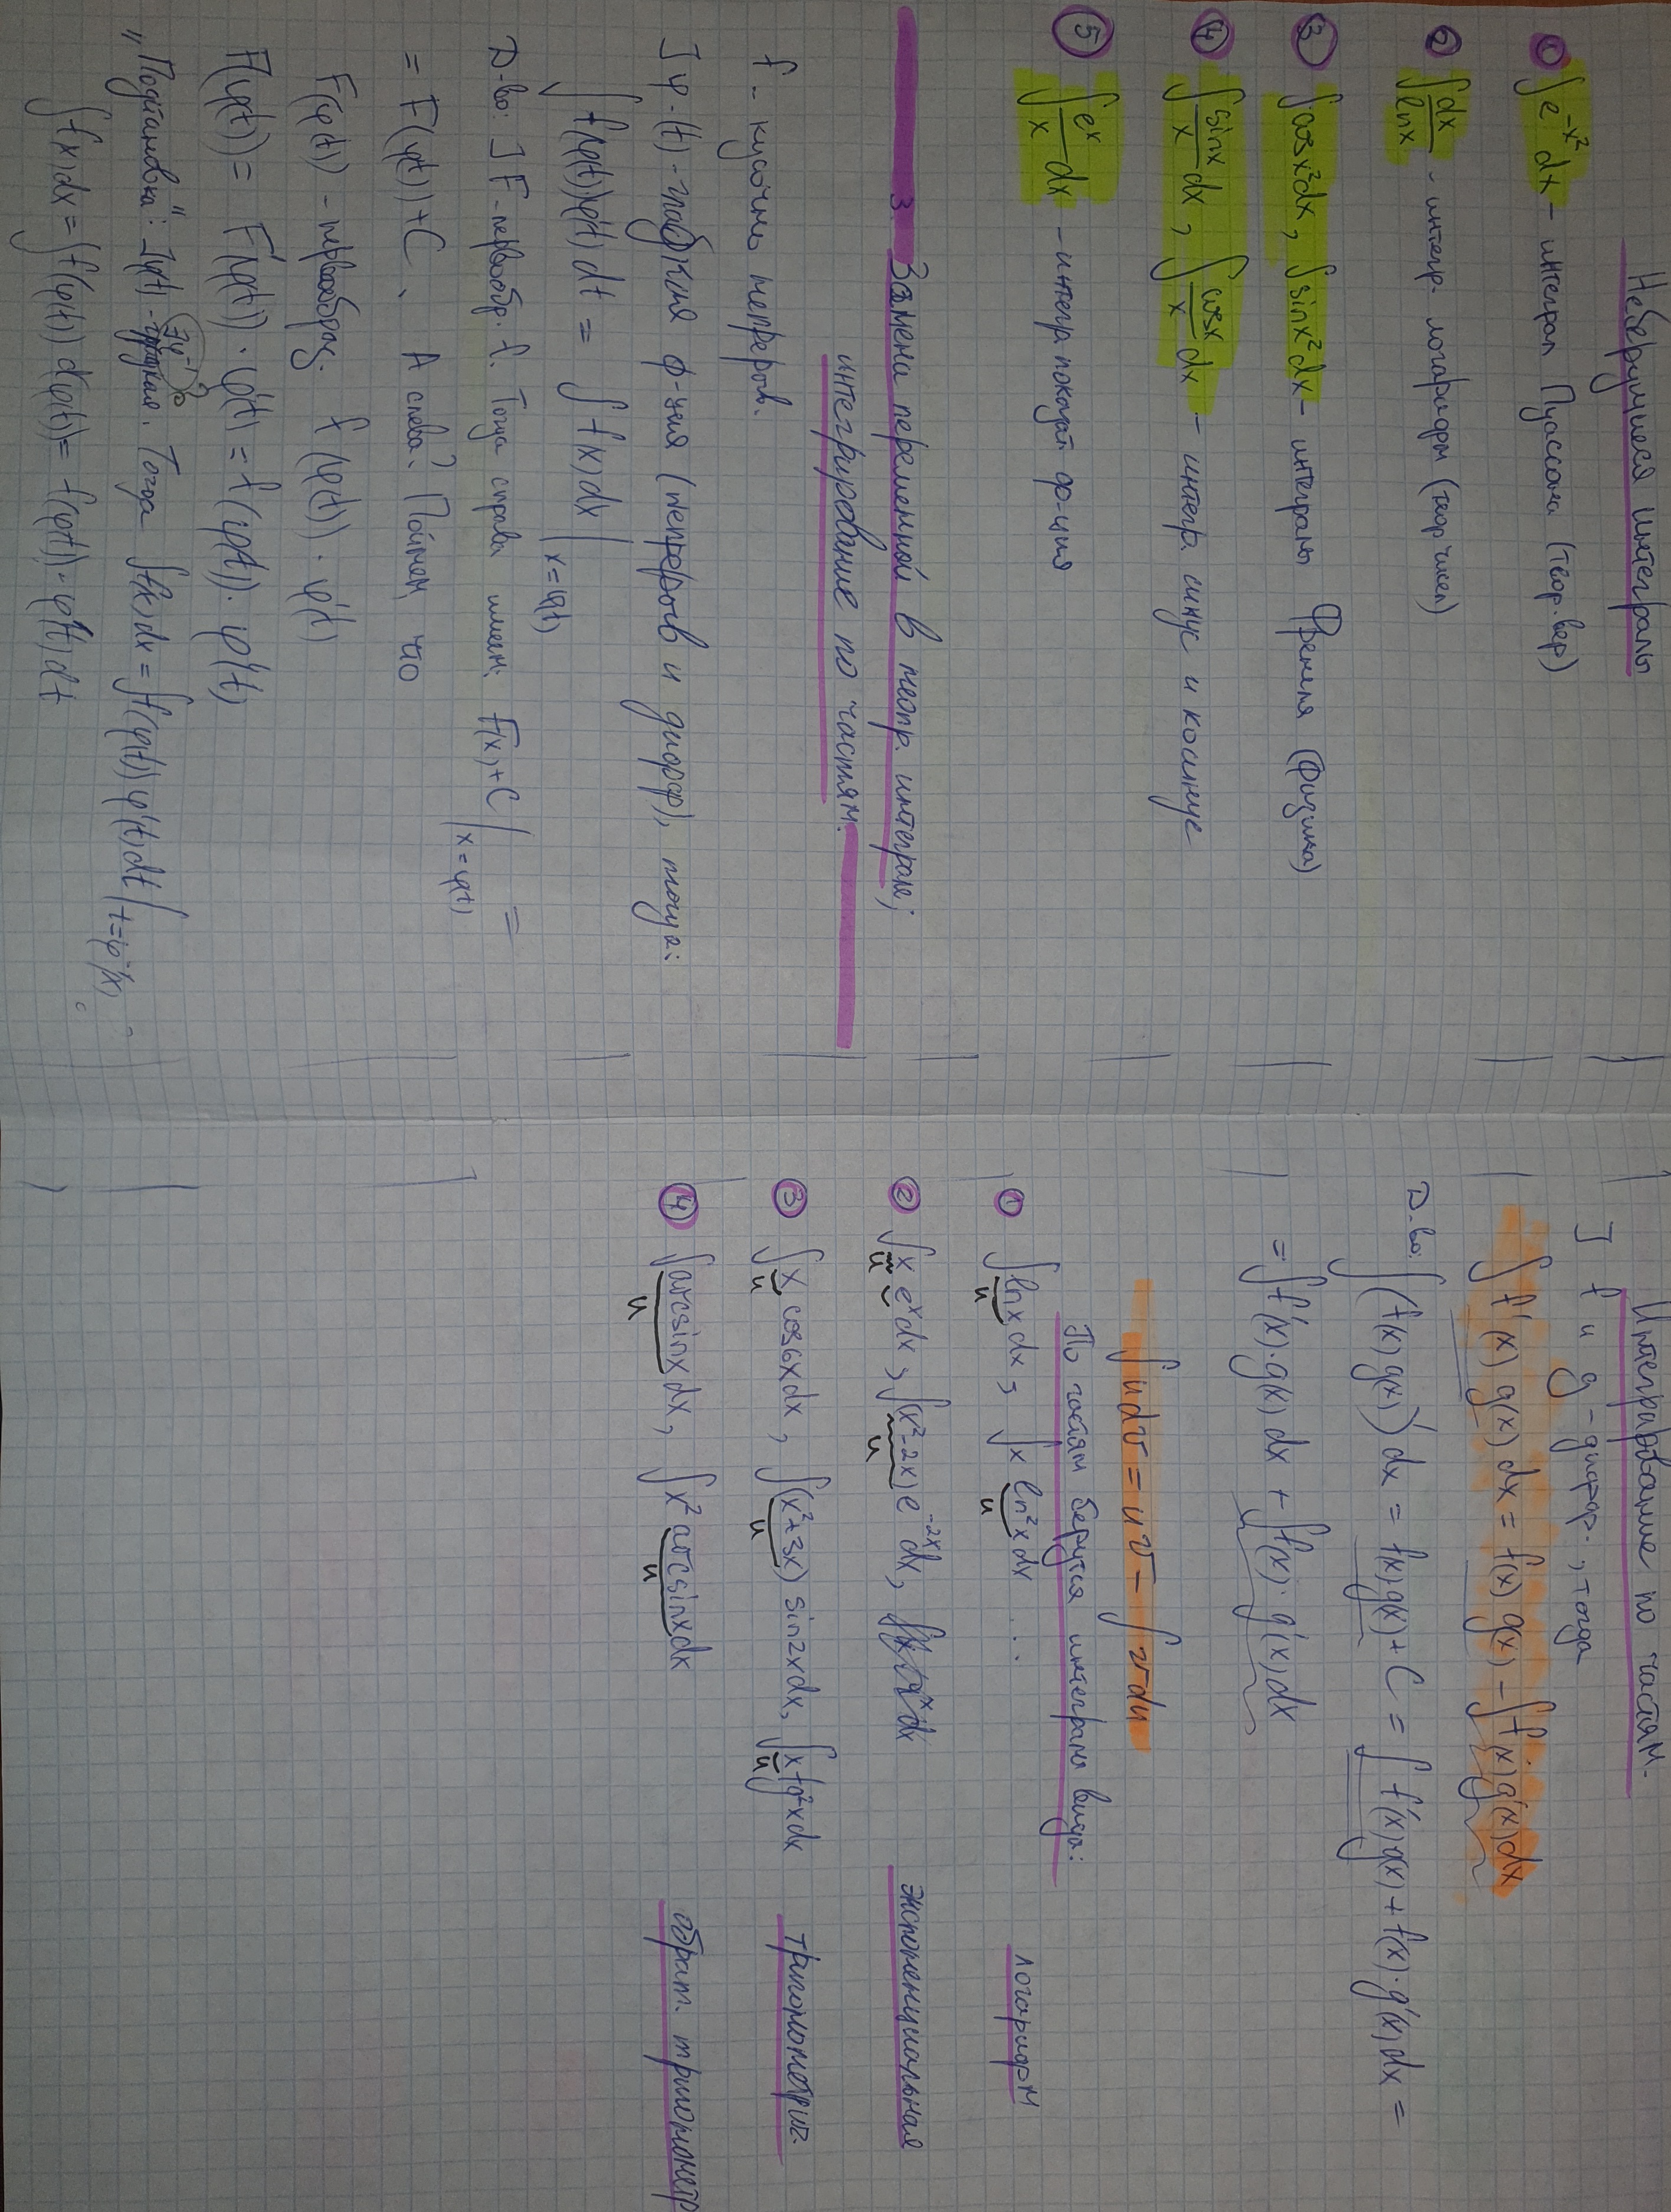 Неберущиеся интегралы
① ∫e^{-x²}dx – интеграл Пуассона (теор. вер)
② ∫dx/lnx - интегр. логарифм (теор чисел)
③ ∫cosx²dx, ∫sinx²dx – интегралы Френеля (физика)
④ ∫sinx/x dx, ∫cosx/x dx – интегр. синус и косинус
⑤ ∫e^x/x dx – интегр показат ф-ция
3. Замена переменной в неопр. интеграле;
интегрирование по частям.
f – кусочно непрерыв.
] φ(t) - гладкая ф-ция (непрерыв и дифф), тогда:
∫f(φ(t))φ'(t)dt = ∫f(x)dx |x=φ(t)
Д-во: ] F - первообр. f. Тогда справа имеем: F(x)+C |x=φ(t) =
= F(φ(t))+C. А слева? Поймем, что
F(φ(t)) – первообраз. f(φ(t))·φ'(t)
F'(φ(t)) = F'(φ(t))·φ'(t) = f(φ(t))·φ'(t)
„Подстановка": ]φ(t) - гладкая. (∃φ⁻¹) Тогда ∫f(x)dx = ∫f(φ(t))φ'(t)dt |t=φ⁻¹(x)
∫f(x)dx = ∫f(φ(t))dφ(t) = f(φ(t))·φ'(t)dt
Интегрирование по частям.
] f и g – диффр., тогда
∫f'(x)g(x)dx = f(x)g(x) – ∫f(x)g'(x)dx
Д-во: ∫(f(x)g(x))'dx = f(x)g(x)+C = ∫f'(x)g(x)+f(x)·g'(x)dx =
= ∫f'(x)·g(x)dx + ∫f(x)·g'(x)dx
∫udv = uv – ∫vdu
По частям берутся интегралы вида:
① ∫lnxdx, ∫x ln²xdx ... логарифм
u u
② ∫x e^x dx, ∫(x²-2x)e^{-2x}dx, экспоненциальная
u u
③ ∫x cos6xdx, ∫(x²+3x)sin2xdx, ∫x tg²xdx тригонометрич.
u u u
④ ∫arcsinxdx, ∫x²arcsinxdx обрат. тригонометр
u u